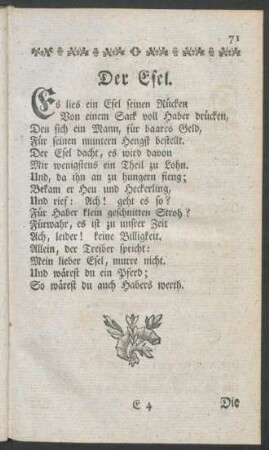 71
Der Esel.
Es lies ein Esel seinen Rücken
Von einem Sack voll Haber drücken,
Den sich ein Mann, für baares Geld,
Für seinen muntern Hengst bestellt.
Der Esel dacht, es wird davon
Mir wenigstens ein Theil zu Lohn.
Und, da ihn an zu hungern fieng;
Bekam er Heu und Heckerling,
Und rief: Ach! geht es so?
Für Haber klein geschnitten Stroh?
Fürwahr, es ist zu unsrer Zeit
Ach, leider! keine Billigkeit.
Allein, der Treiber spricht:
Mein lieber Esel, murre nicht.
Und wärest du ein Pferd;
So wärest du auch Habers werth.
E 4
Die